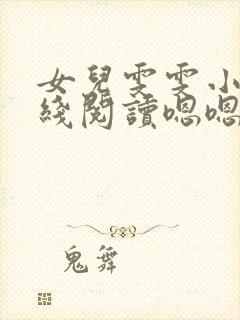 女兒雯雯小
綫閱讀嗯嗯
鬼舞